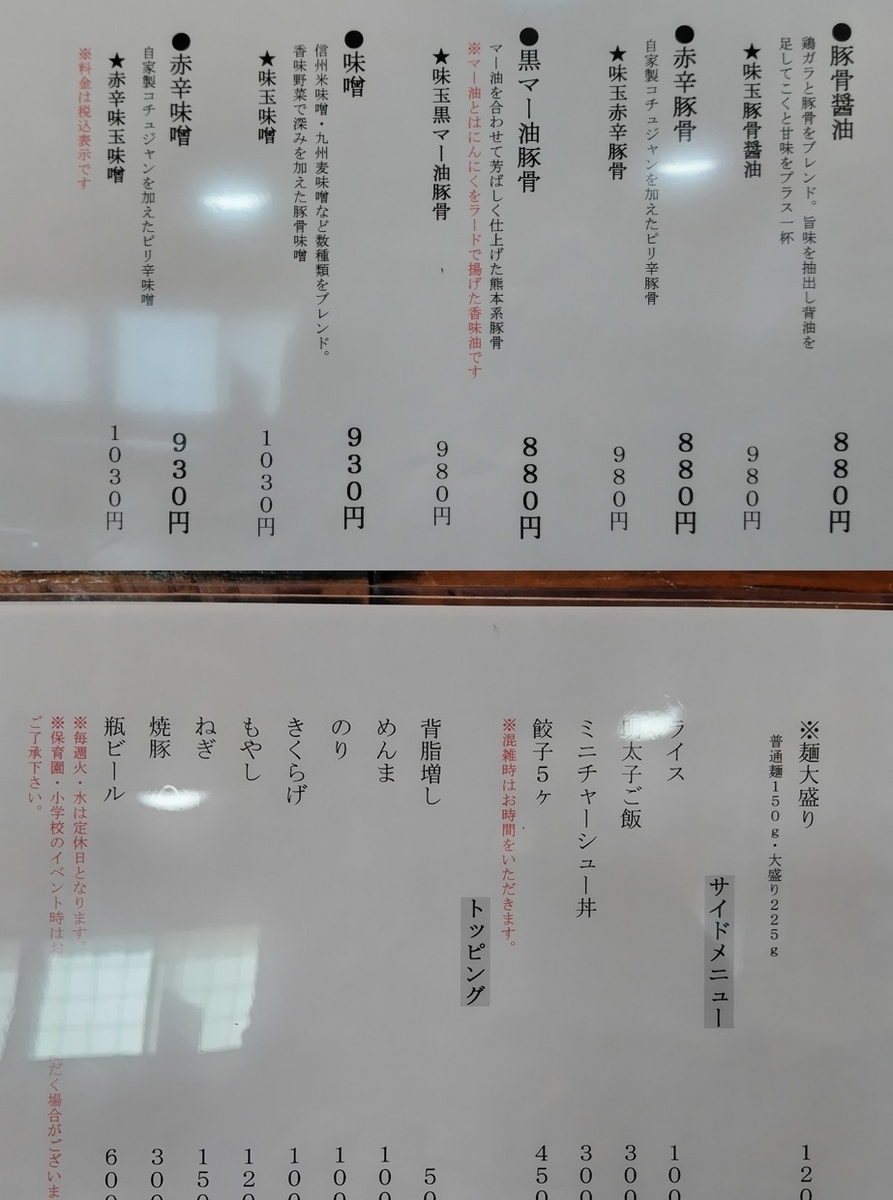 ●豚骨醤油 880円
鶏ガラと豚骨をブレンド。旨味を抽出し背油を
足してこくと甘味をプラス一杯
★味玉豚骨醤油 980円
●赤辛豚骨 880円
自家製コチュジャンを加えたピリ辛豚骨
★味玉赤辛豚骨 980円
●黒マー油豚骨 880円
マー油を合わせて芳ばしく仕上げた熊本系豚骨
※マー油とはにんにくをラードで揚げた香味油です
★味玉黒マー油豚骨 980円
●味噌 930円
信州米味噌・九州麦味噌など数種類をブレンド。
香味野菜で深みを加えた豚骨味噌
★味玉味噌 1030円
●赤辛味噌 930円
自家製コチュジャンを加えたピリ辛味噌
★赤辛味玉味噌 1030円
※料金は税込表示です
※麺大盛り 120
普通麺150g・大盛り225g
サイドメニュー
ライス 100
太子ご飯 300
ミニチャーシュー丼 300
餃子5ヶ 450
※混雑時はお時間をいただきます。
トッピング
背脂増し 50
めんま 100
のり 100
きくらげ 100
もやし 120
ねぎ 150
焼豚 300
瓶ビール 600
※毎週火・水は定休日となります。
※保育園・小学校のイベント時はお だく場合がございま
ご了承下さい。